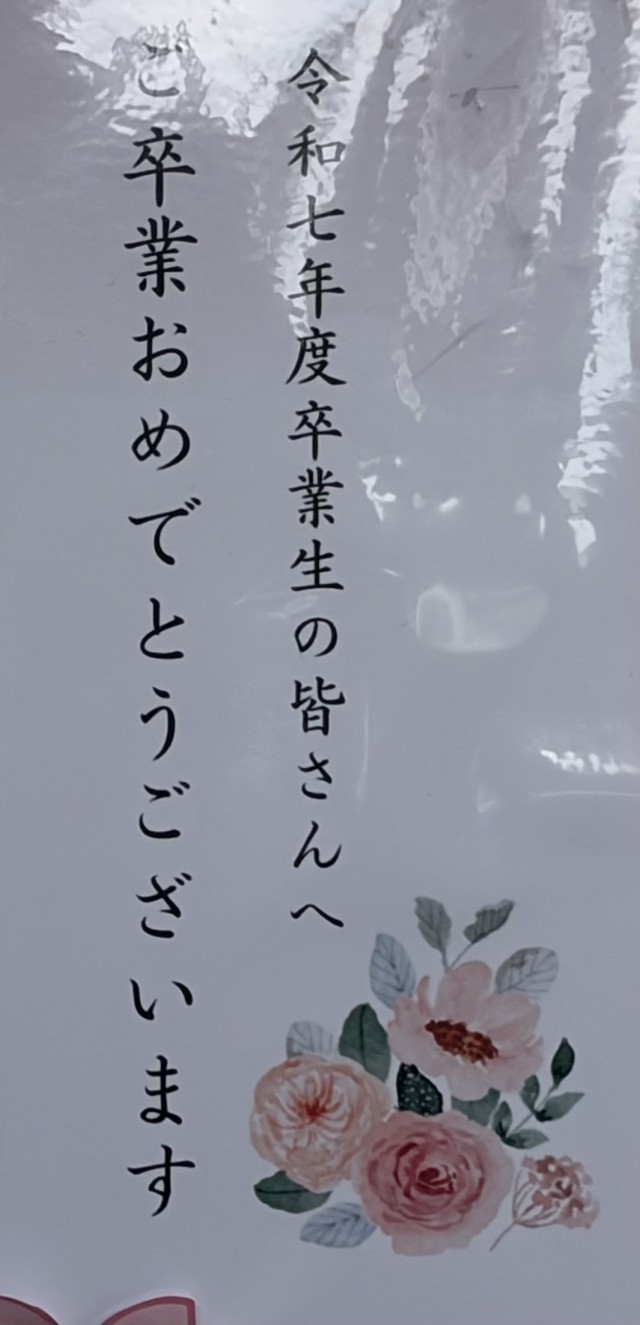 令和七年度卒業生の皆さんへ
ご卒業おめでとうございます